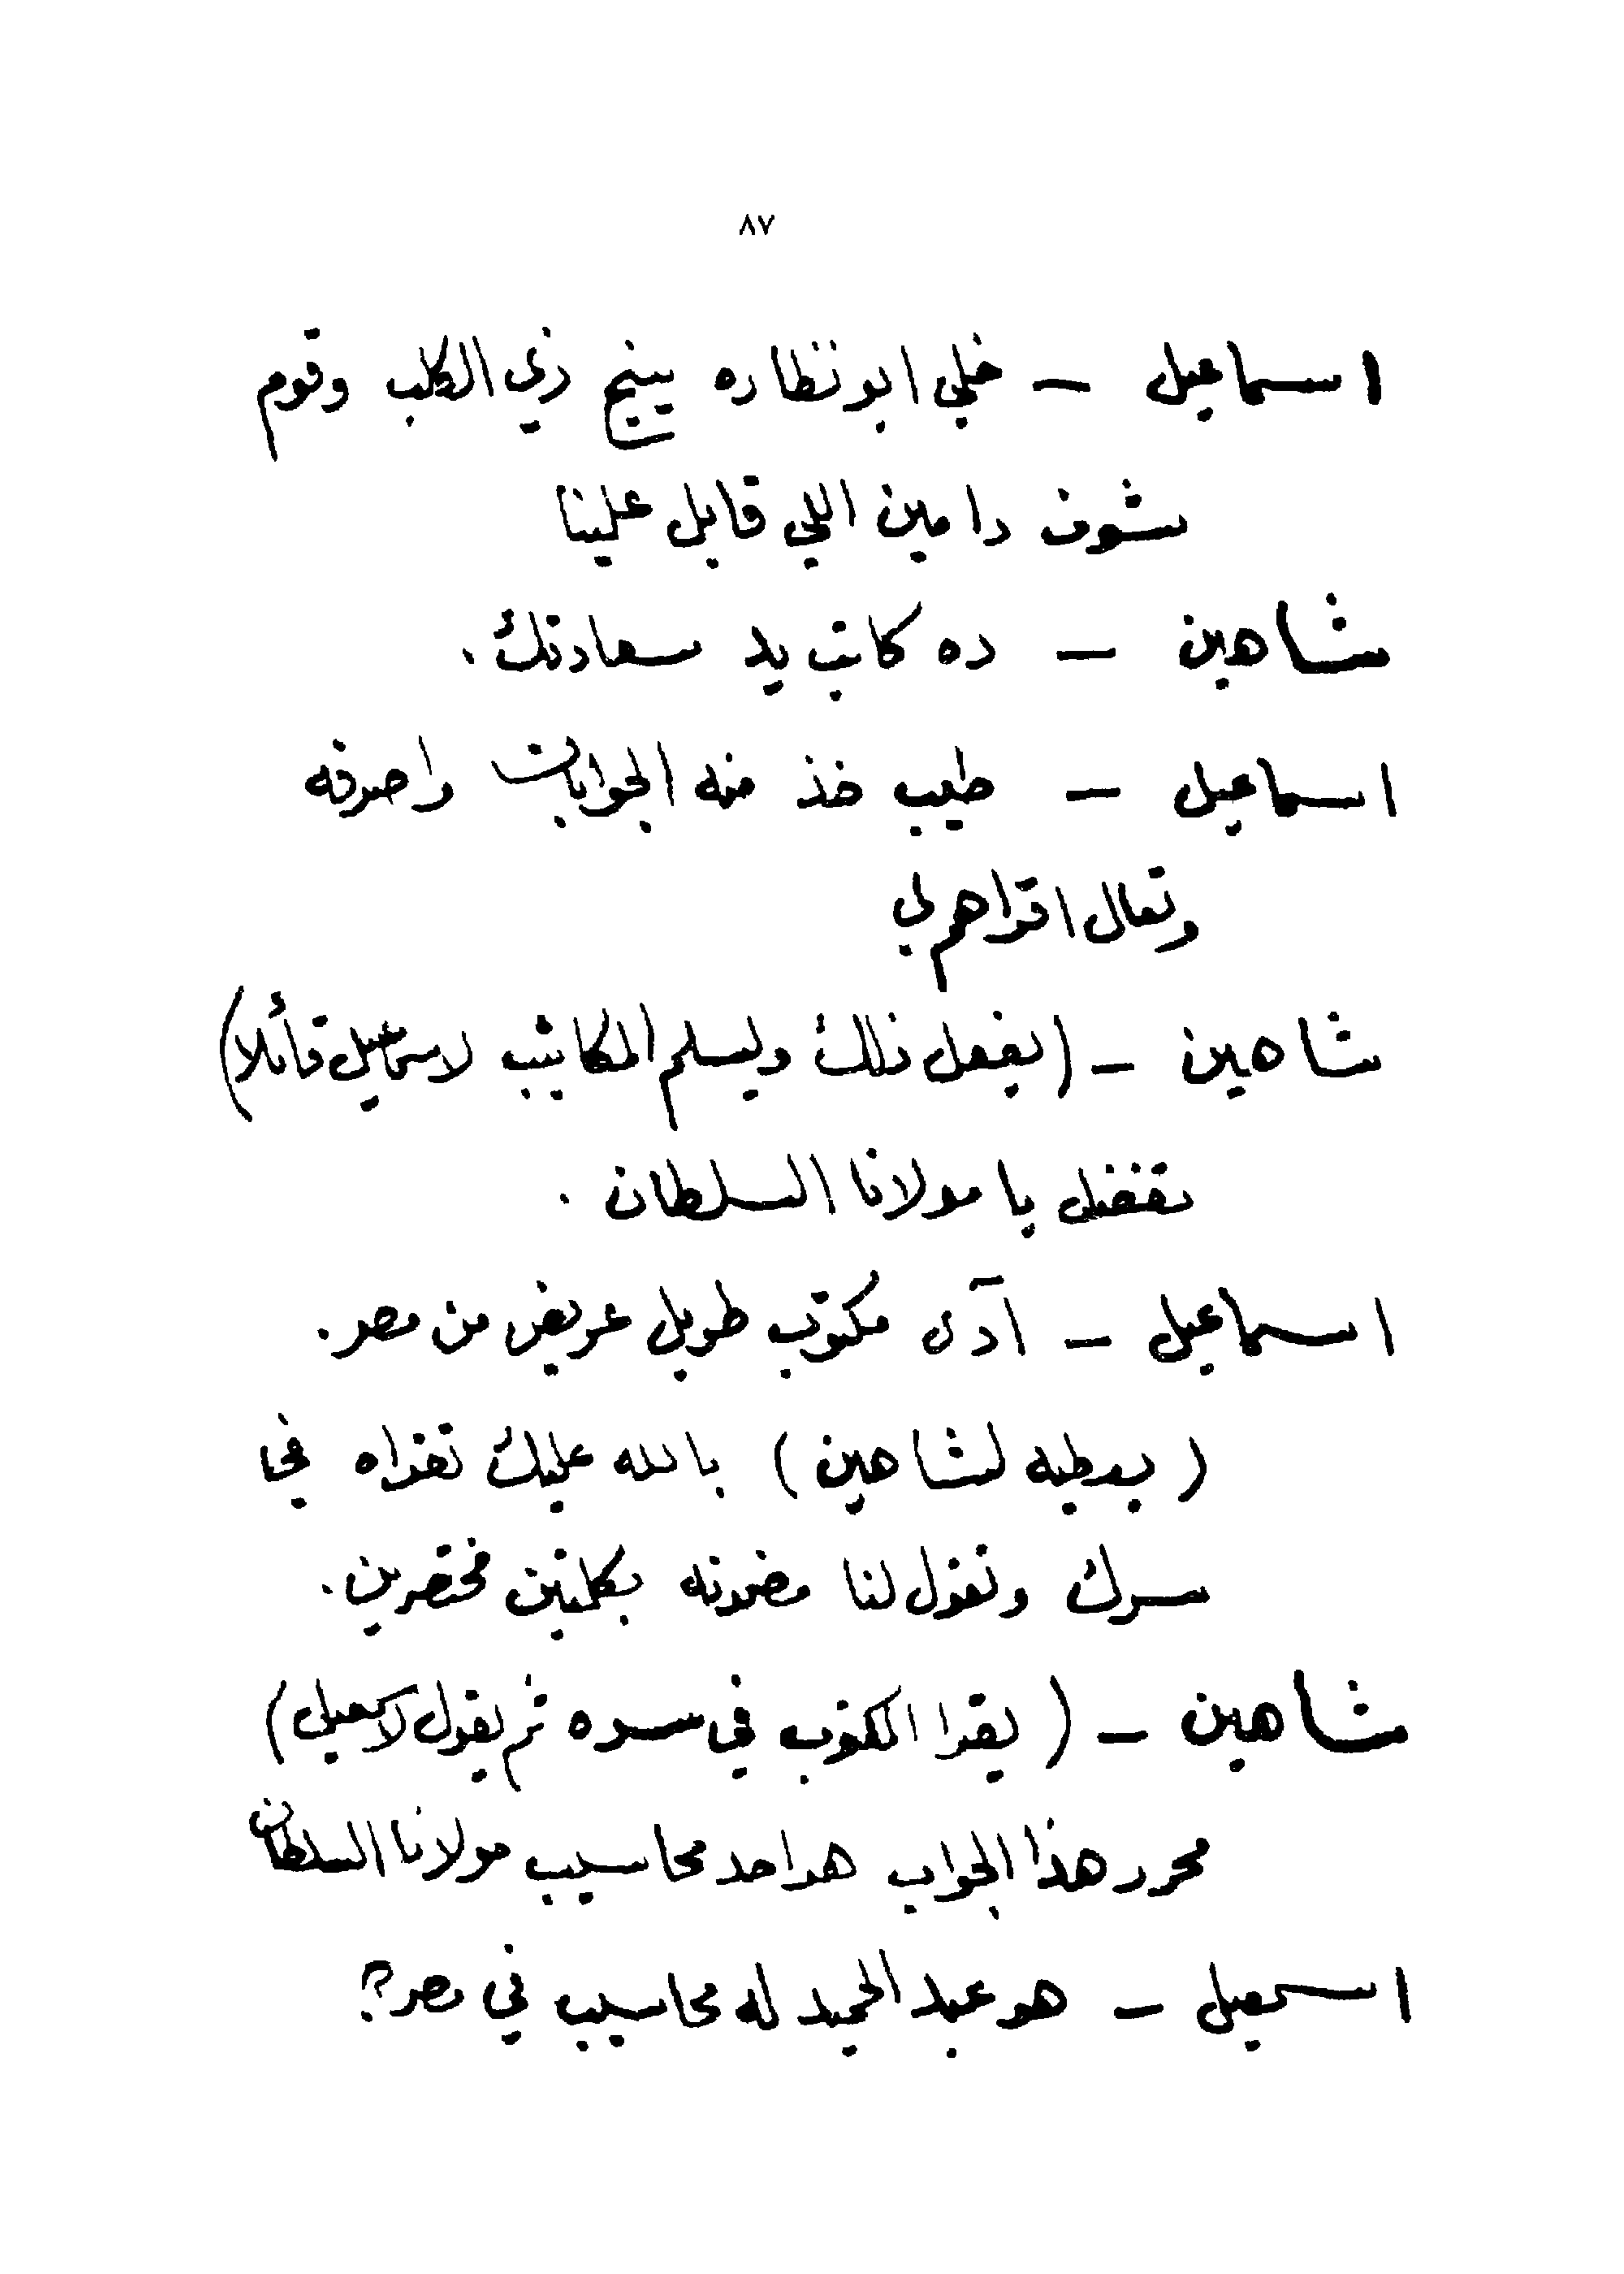 ٨٧
اسماعيل — خلي ابو نظاره ينبح زي الكلب وقوم
شوف دا مين اللي قابل علينا
شاهين — ده كاتب يد سعادتك .
اسماعيل — طيب خذ منه الجوابات واصرفه
وتعال اقراهم لي
شاهين — (يفعل ذلك ويسلم المكاتيب لاسماعيل قائلا)
تفضل يا مولانا السلطان .
اسماعيل — آدى مكتوب طويل عريض من مصر .
( يعطيه لشاهين ) بالله عليك تقراه في
سرك وتقول لنا مضمونه بكلمتين مختصرين .
شاهين — ( يقرا المكتوب في سره ثم يقول لاسمعيل )
محرر هذا الجواب هو احد محاسيب مولانا السلطان
اسمعيل — هو عبد الحميد له محاسيب في مصر ؟